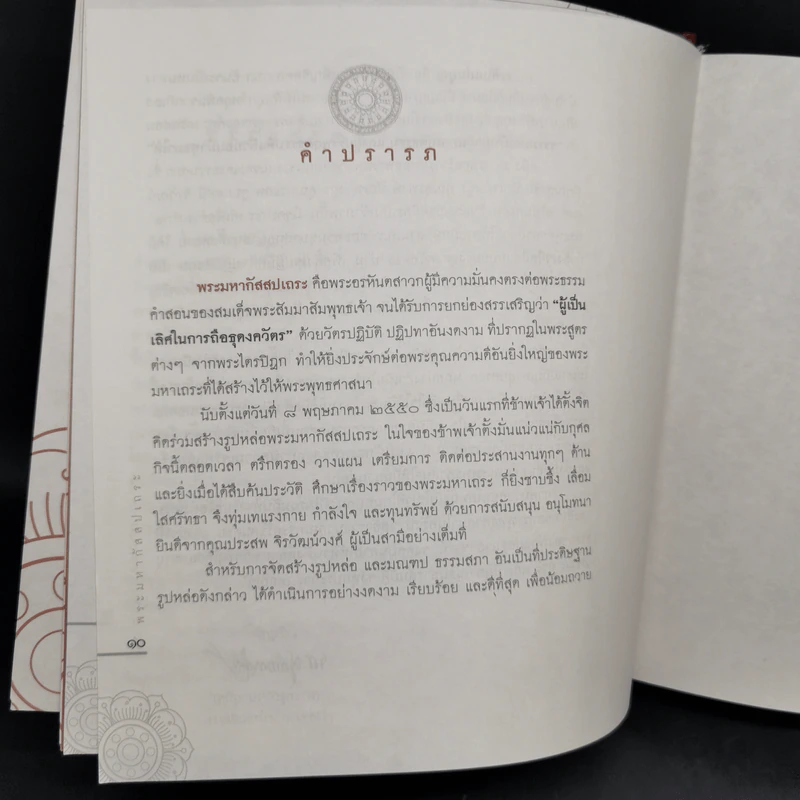 คำปรารภ
พระมหากัสสปเถระ คือพระอรหันตสาวกผู้มีความมั่นคงตรงต่อพระธรรม
คำสอนของสมเด็จพระสัมมาสัมพุทธเจ้า จนได้รับการยกย่องสรรเสริญว่า "ผู้เป็น
เลิศในการถือธุดงควัตร" ด้วยวัตรปฏิบัติ ปฏิปทาอันงดงาม ที่ปรากฏในพระสูตร
ต่างๆ จากพระไตรปิฎก ทำให้ยิ่งประจักษ์ต่อพระคุณความดีอันยิ่งใหญ่ของพระ
มหาเถระที่ได้สร้างไว้ให้พระพุทธศาสนา
นับตั้งแต่วันที่ ๘ พฤษภาคม ๒๕๕๐ ซึ่งเป็นวันแรกที่ข้าพเจ้าได้ตั้งจิต
คิดร่วมสร้างรูปหล่อพระมหากัสสปเถระ ในใจของข้าพเจ้าตั้งมั่นแน่วแน่กับกุศล
กิจนี้ตลอดเวลา ตรึกตรอง วางแผน เตรียมการ ติดต่อประสานงานทุกๆ ด้าน
และยิ่งเมื่อได้สืบค้นประวัติ ศึกษาเรื่องราวของพระมหาเถระ ก็ยิ่งซาบซึ้ง เลื่อม
ใสศรัทธา จึงทุ่มเทแรงกาย กำลังใจ และทุนทรัพย์ ด้วยการสนับสนุน อนุโมทนา
ยินดีจากคุณประสพ จิรวัฒน์วงศ์ ผู้เป็นสามีอย่างเต็มที่
สำหรับการจัดสร้างรูปหล่อ และมณฑป ธรรมสภา อันเป็นที่ประดิษฐาน
รูปหล่อดังกล่าว ได้ดำเนินการอย่างงดงาม เรียบร้อย และดีที่สุด เพื่อน้อมถวาย
พระมหากัสสปเถระ
๑๐